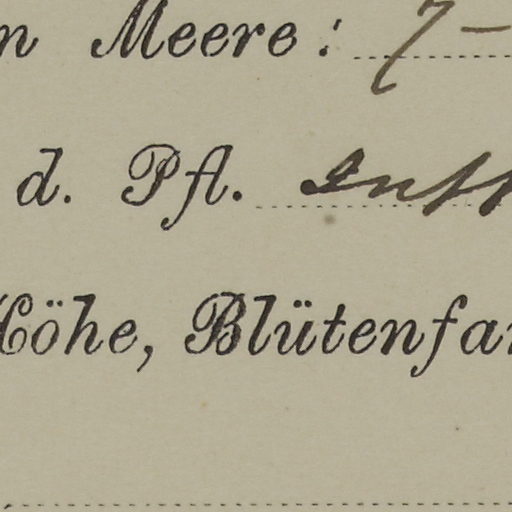 n Meere: 7-
d. Pfl.
Höhe, Blütenfar